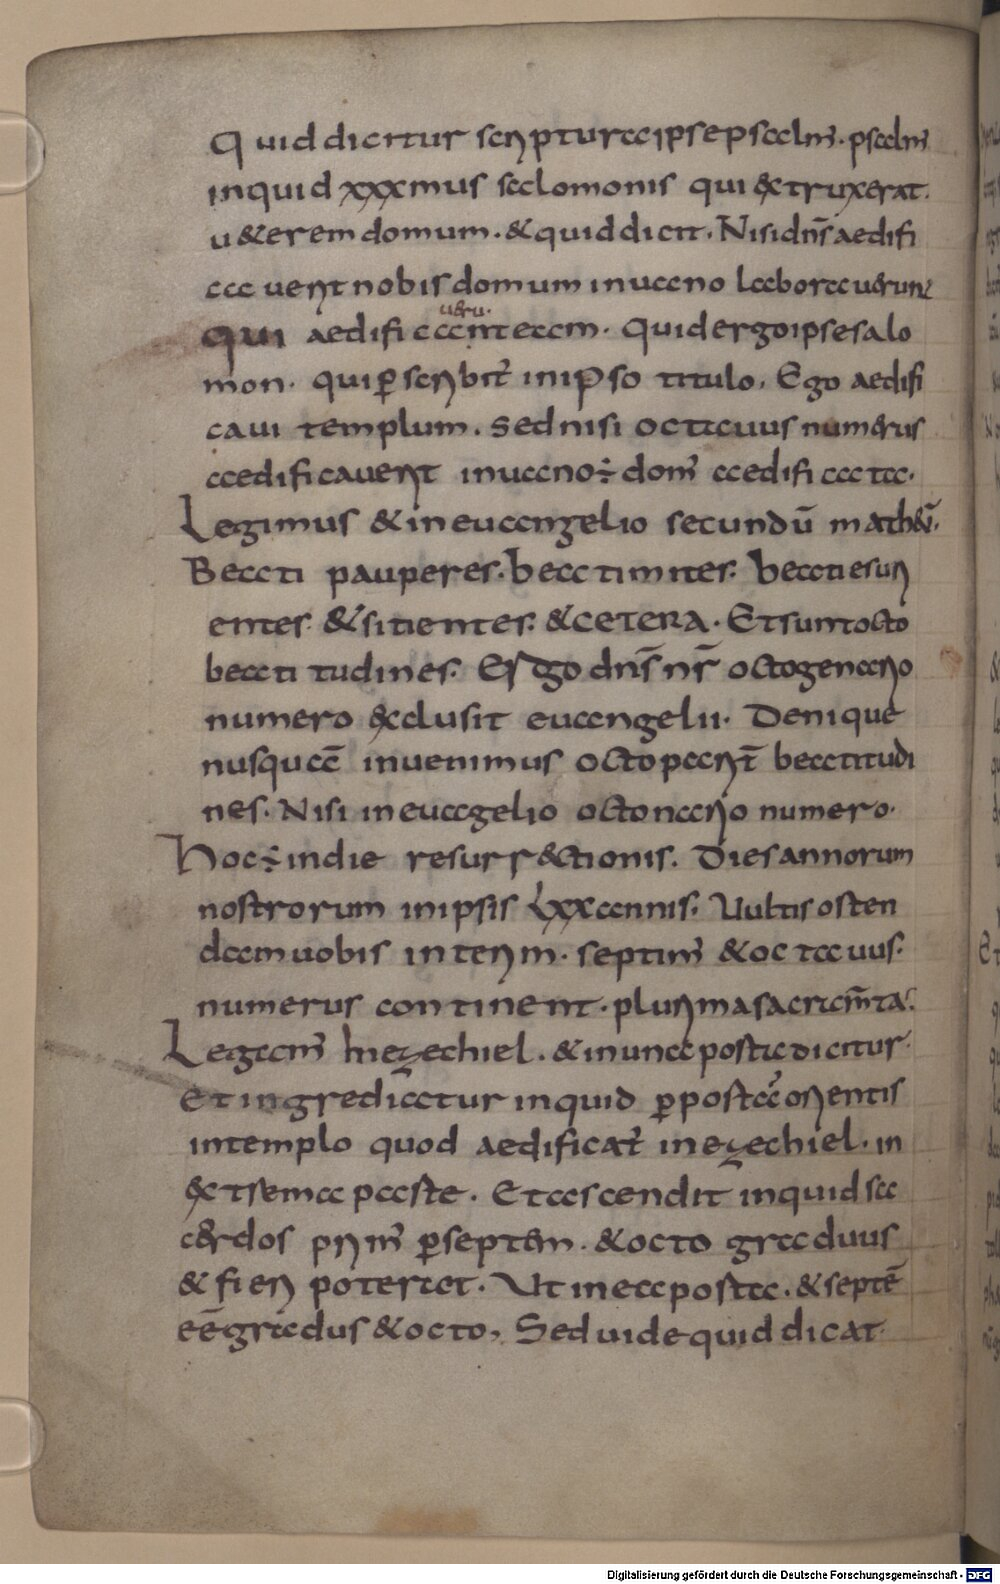 Quid dicitur scriptura ipse psalm̄. psalm̄
inquid xxxmus salomonis qui &truxerat.
u&erem domum. & quid dicit. Nisi dn̄s aedifi
cauerit nobis domum in uano laborauerunt
qui aedificant eam. Quid ergo ipse salo
ueru.
mon. qui p̲scribit̄ in ipso titulo. Ego aedifi
caui templum. sed nisi octauus numerus
aedificauerit in uano ÷ dom̄ aedificata.
Legimus & in euangelio secundū math&̄.
Beati pauperes. beati mites. beati esuri
entes. & sitientes. & cetera. Et sunt octo
beatitudines. Ergo dn̄s nr̄ octogenario
numero &clusit euangelii. Denique
nusquā inuenimus octo parit̄ beatitudi
nes. Nisi in euagelio octonario numero.
Hoc ÷ in die resurr&ctionis. Dies annorum
nostrorum in ipsis Lxx annis. Uultis osten
dam uobis interim. septim̄ & octauus.
numerus continent. plurima sacram̄ta.
Legam̄ hiezechiel. & in una posta dicitur.
Et ingrediatur inquid p̲ postā orientis
in templo quod aedificat̄ in ezechiel. in
&tsema paste. Et ascendit inquid sa
cerdos prim̄ p̲ septem. & octo graduus
& fieri poterat. Ut in ea posta. & septē
eē gradus & octo, Sed uide quid dicat
Digitalisierung gefördert durch die Deutsche Forschungsgemeinschaft - DFG